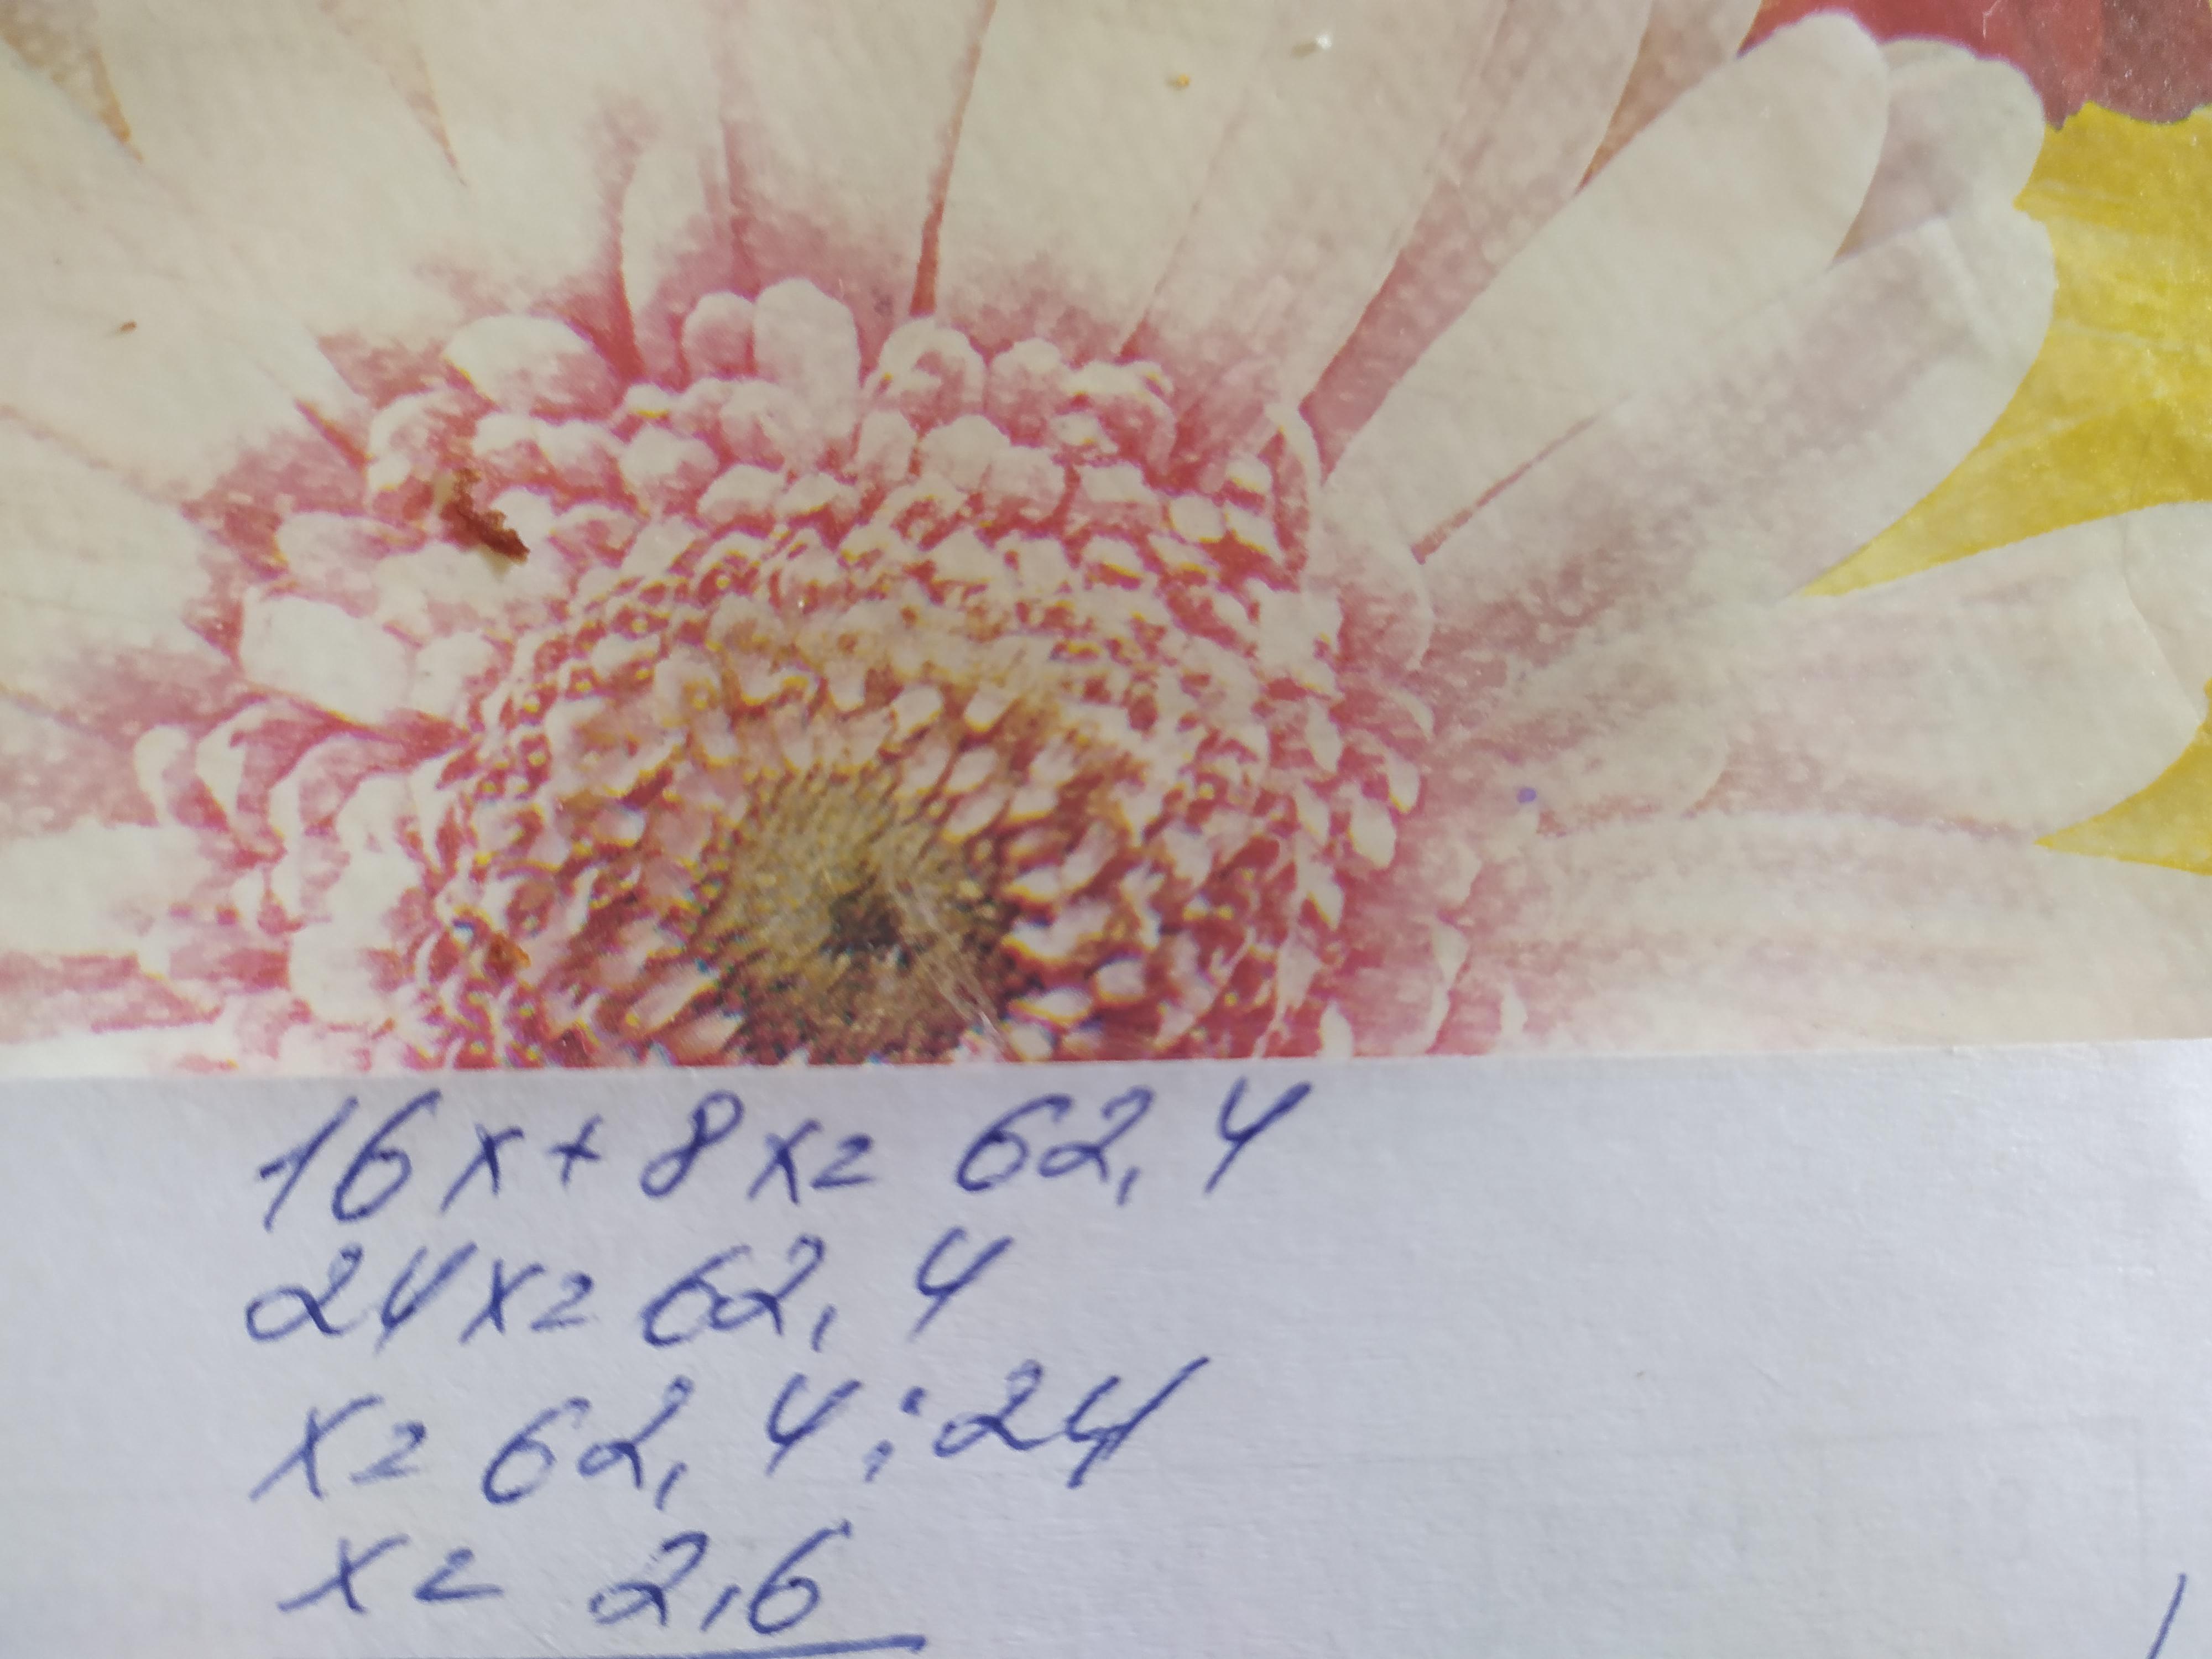 16x+8x=62,4
24x=62,4
x=62,4:24
x=2,6